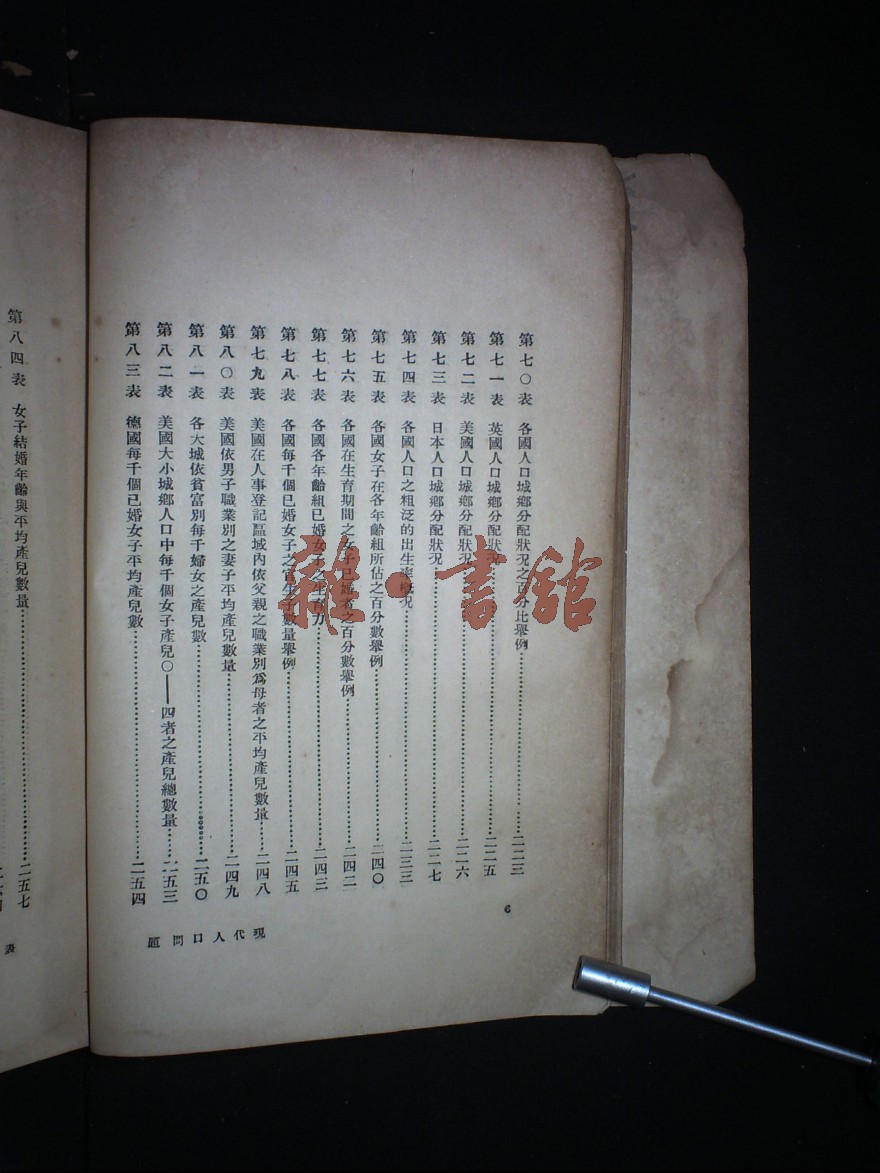 第七〇表 各國人口城鄉分配狀況之百分比舉例……二二三
第七一表 英國人口城鄉分配狀況……二二五
第七二表 美國人口城鄉分配狀況……二二六
第七三表 日本人口城鄉分配狀況……二二七
第七四表 各國人口之粗泛的出生率概況……二三三
第七五表 各國女子在各年齡組所佔之百分數舉例……二四〇
第七六表 各國在生育期間之女子已婚者之百分數舉例……二四二
第七七表 各國各年齡組已婚女子之生育力……二四三
第七八表 各國每千個已婚女子之官生子數量舉例……二四五
第七九表 美國在人事登記區域內依父親之職業別爲母者之平均產兒數量……二四八
第八〇表 美國依男子職業別之妻子平均產兒數量……二四九
第八一表 各大城依貧富別每千婦女之產兒數……二五〇
第八二表 美國大小城鄉人口中每千個女子產兒〇——四者之產兒總數量……二五三
第八三表 德國每千個已婚女子平均產兒數……二五四
6
現代人口問題
第八四表 女子結婚年齡與平均產兒數量……二五七
表
雜·書館